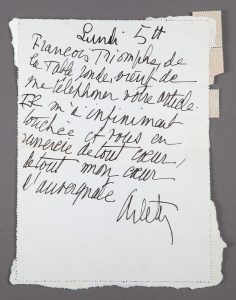 Lundi 5H
François Triomphe, de
la Table Ronde, vient de
me téléphoner votre article.
Il m'a infiniment
touchée et vous en
remercie de tout coeur,
de tout mon coeur
d'auvergnate
Arletty